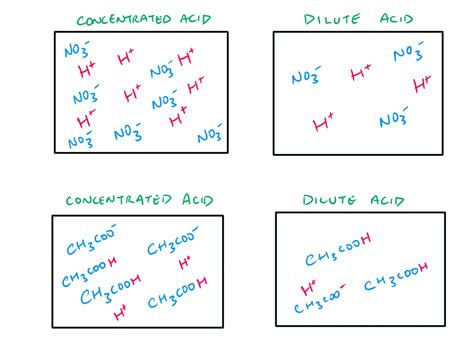 CONCENTRATED ACID
NO₃⁻ H⁺ H⁺ NO₃⁻ H⁺
NO₃⁻ H⁺ NO₃⁻ H⁺
H⁺ NO₃⁻ H⁺
NO₃⁻ NO₃⁻ NO₃⁻
DILUTE ACID
NO₃⁻ H⁺ NO₃⁻
H⁺
H⁺ NO₃⁻
CONCENTRATED ACID
CH₃COO⁻ CH₃COO⁻
CH₃COOH H⁺
CH₃COOH CH₃COOH
H⁺
DILUTE ACID
CH₃COOH
H⁺
CH₃COO⁻ CH₃COOH